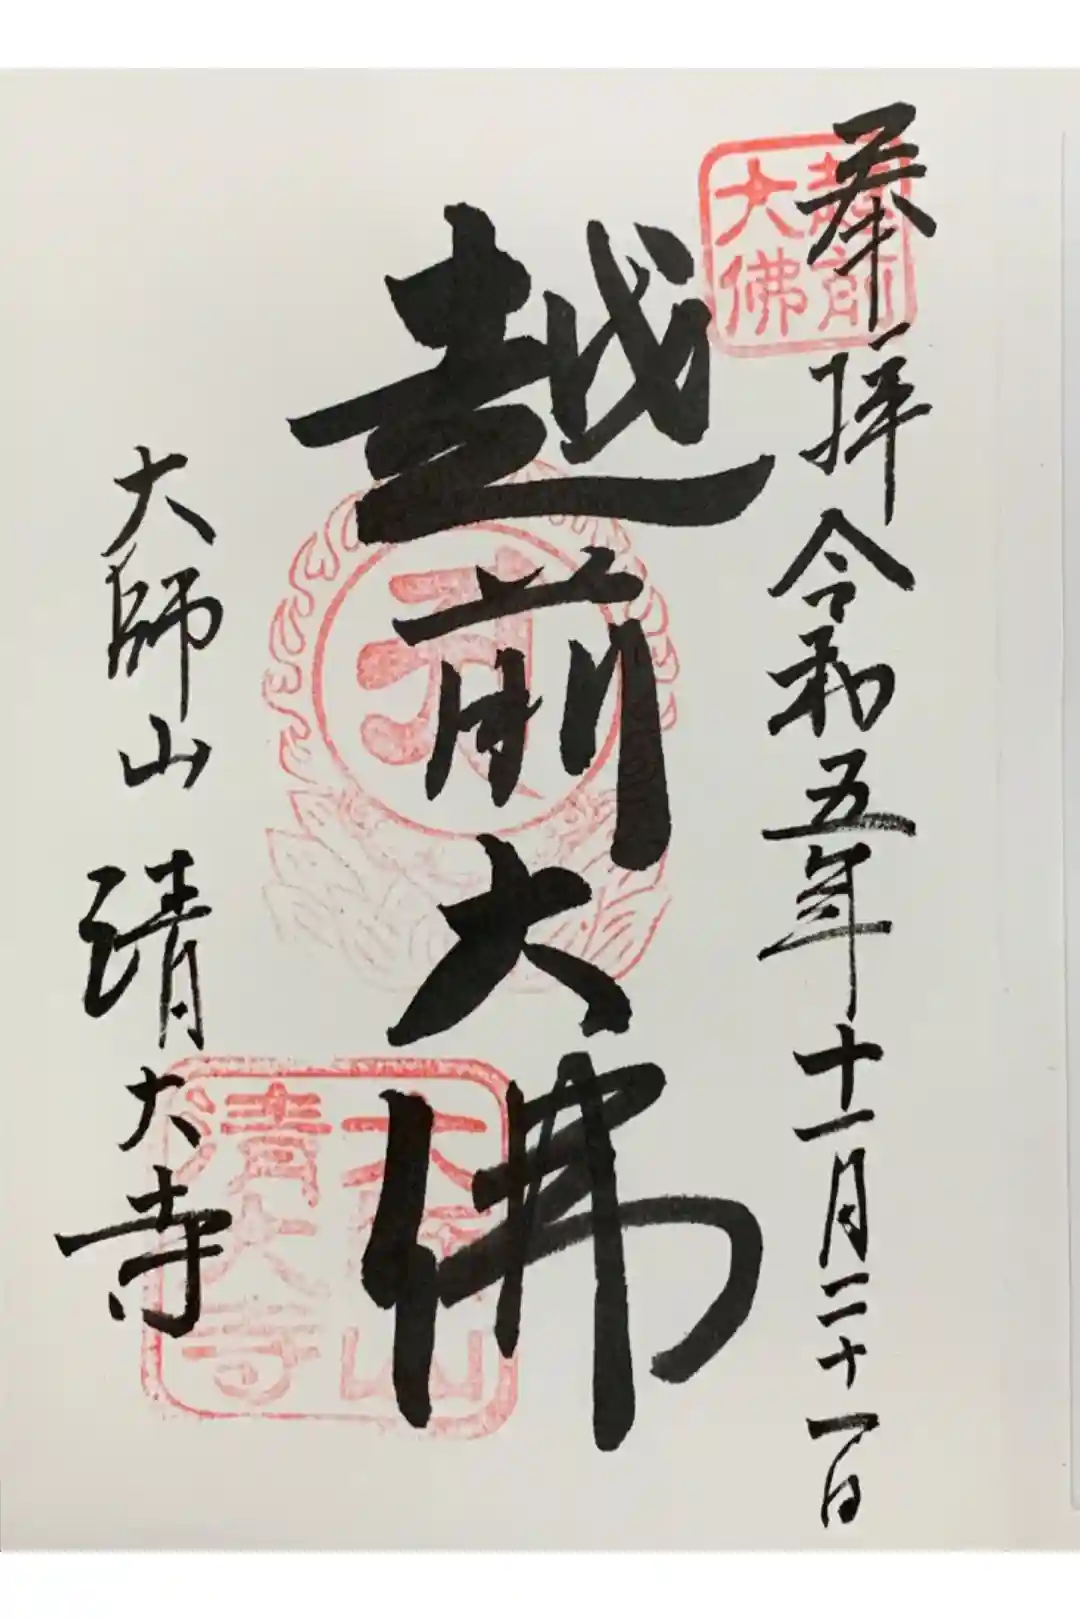 奉拝 令和五年十一月二十一日
越前大佛
大師山 清大寺
越前大佛
大師山清大寺